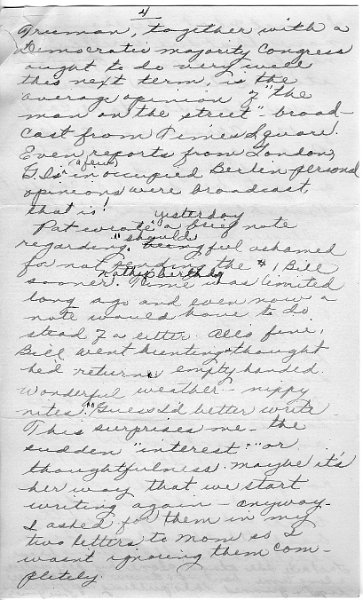 4
Truman, together with a
Democratic majority Congress
ought to do very well
this next term, is the
average opinion of "the
man on the street" broad-
cast from Times Square.
Even reports from London,
(a few)
G.Is in occupied Berlin personal
opinions were broadcast,
that is!
yesterday
Pat wrote a brief note
"should
regarding, being ful ashamed
for not sending the $1 Bill
birthday
sooner. Time was limited
long ago and even now a
note would have to do
stead of a letter. All's fine,
Bill went hunting & thought
he'd return empty handed.
Wonderful weather - nippy
nites. "Guess I'd better write
This surprises me - the
sudden "interest" or
thoughtfulness. Maybe it's
her way that we start
writing again - anyway -
I asked for them in my
two letters to Mom so I
wasn't ignoring them com-
pletely.